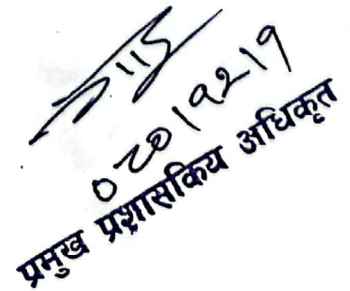 ०८०।१२।१
प्रमुख प्रशासकिय अधिकृत